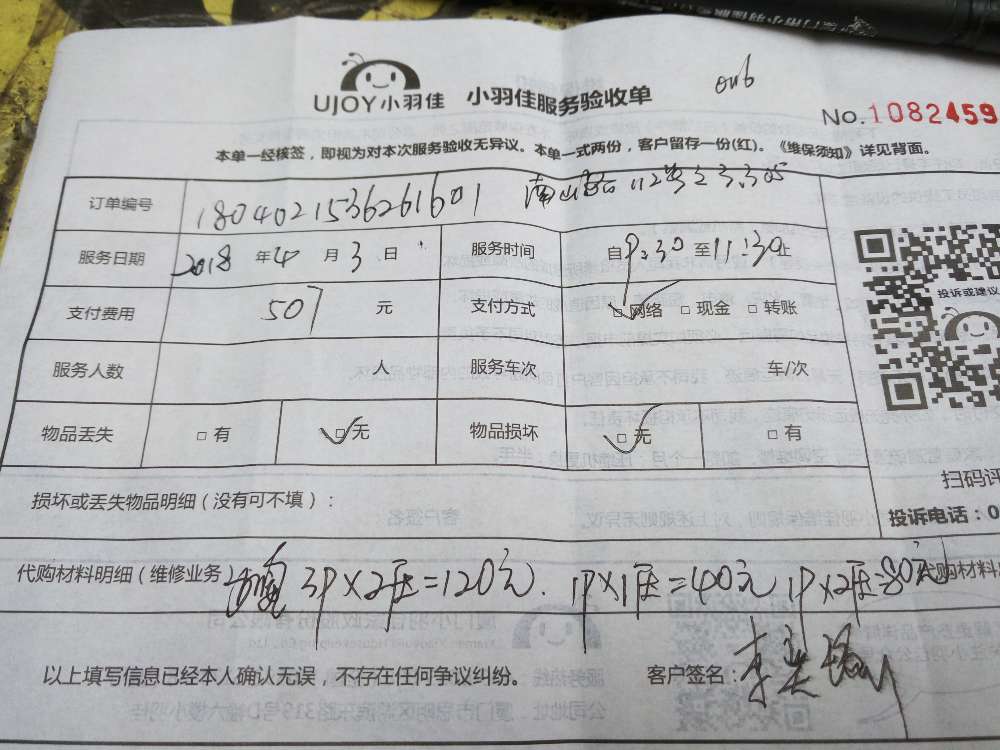 UJOY小羽佳 小羽佳服务验收单
No.1082459
本单一经核签，即视为对本次服务验收无异议。本单一式两份，客户留存一份(红)。《维保须知》详见背面。
订单编号 1804021536261601 南山路112号之3.305
服务日期 2018 年 4 月 3 日 服务时间 自 9:30 至 11:30 止
支付费用 507 元 支付方式 □网络 □现金 □转账
投诉或建议
服务人数 人 服务车次 车/次
物品丢失 □有 □无 物品损坏 □无 □有
扫码评
损坏或丢失物品明细（没有可不填）：
投诉电话：0
代购材料明细（维修业务） 3P×2 =120元. 1P×1 =40元 1P×2 =80元 代购材料
以上填写信息已经本人确认无误，不存在任何争议纠纷。 客户签名：李